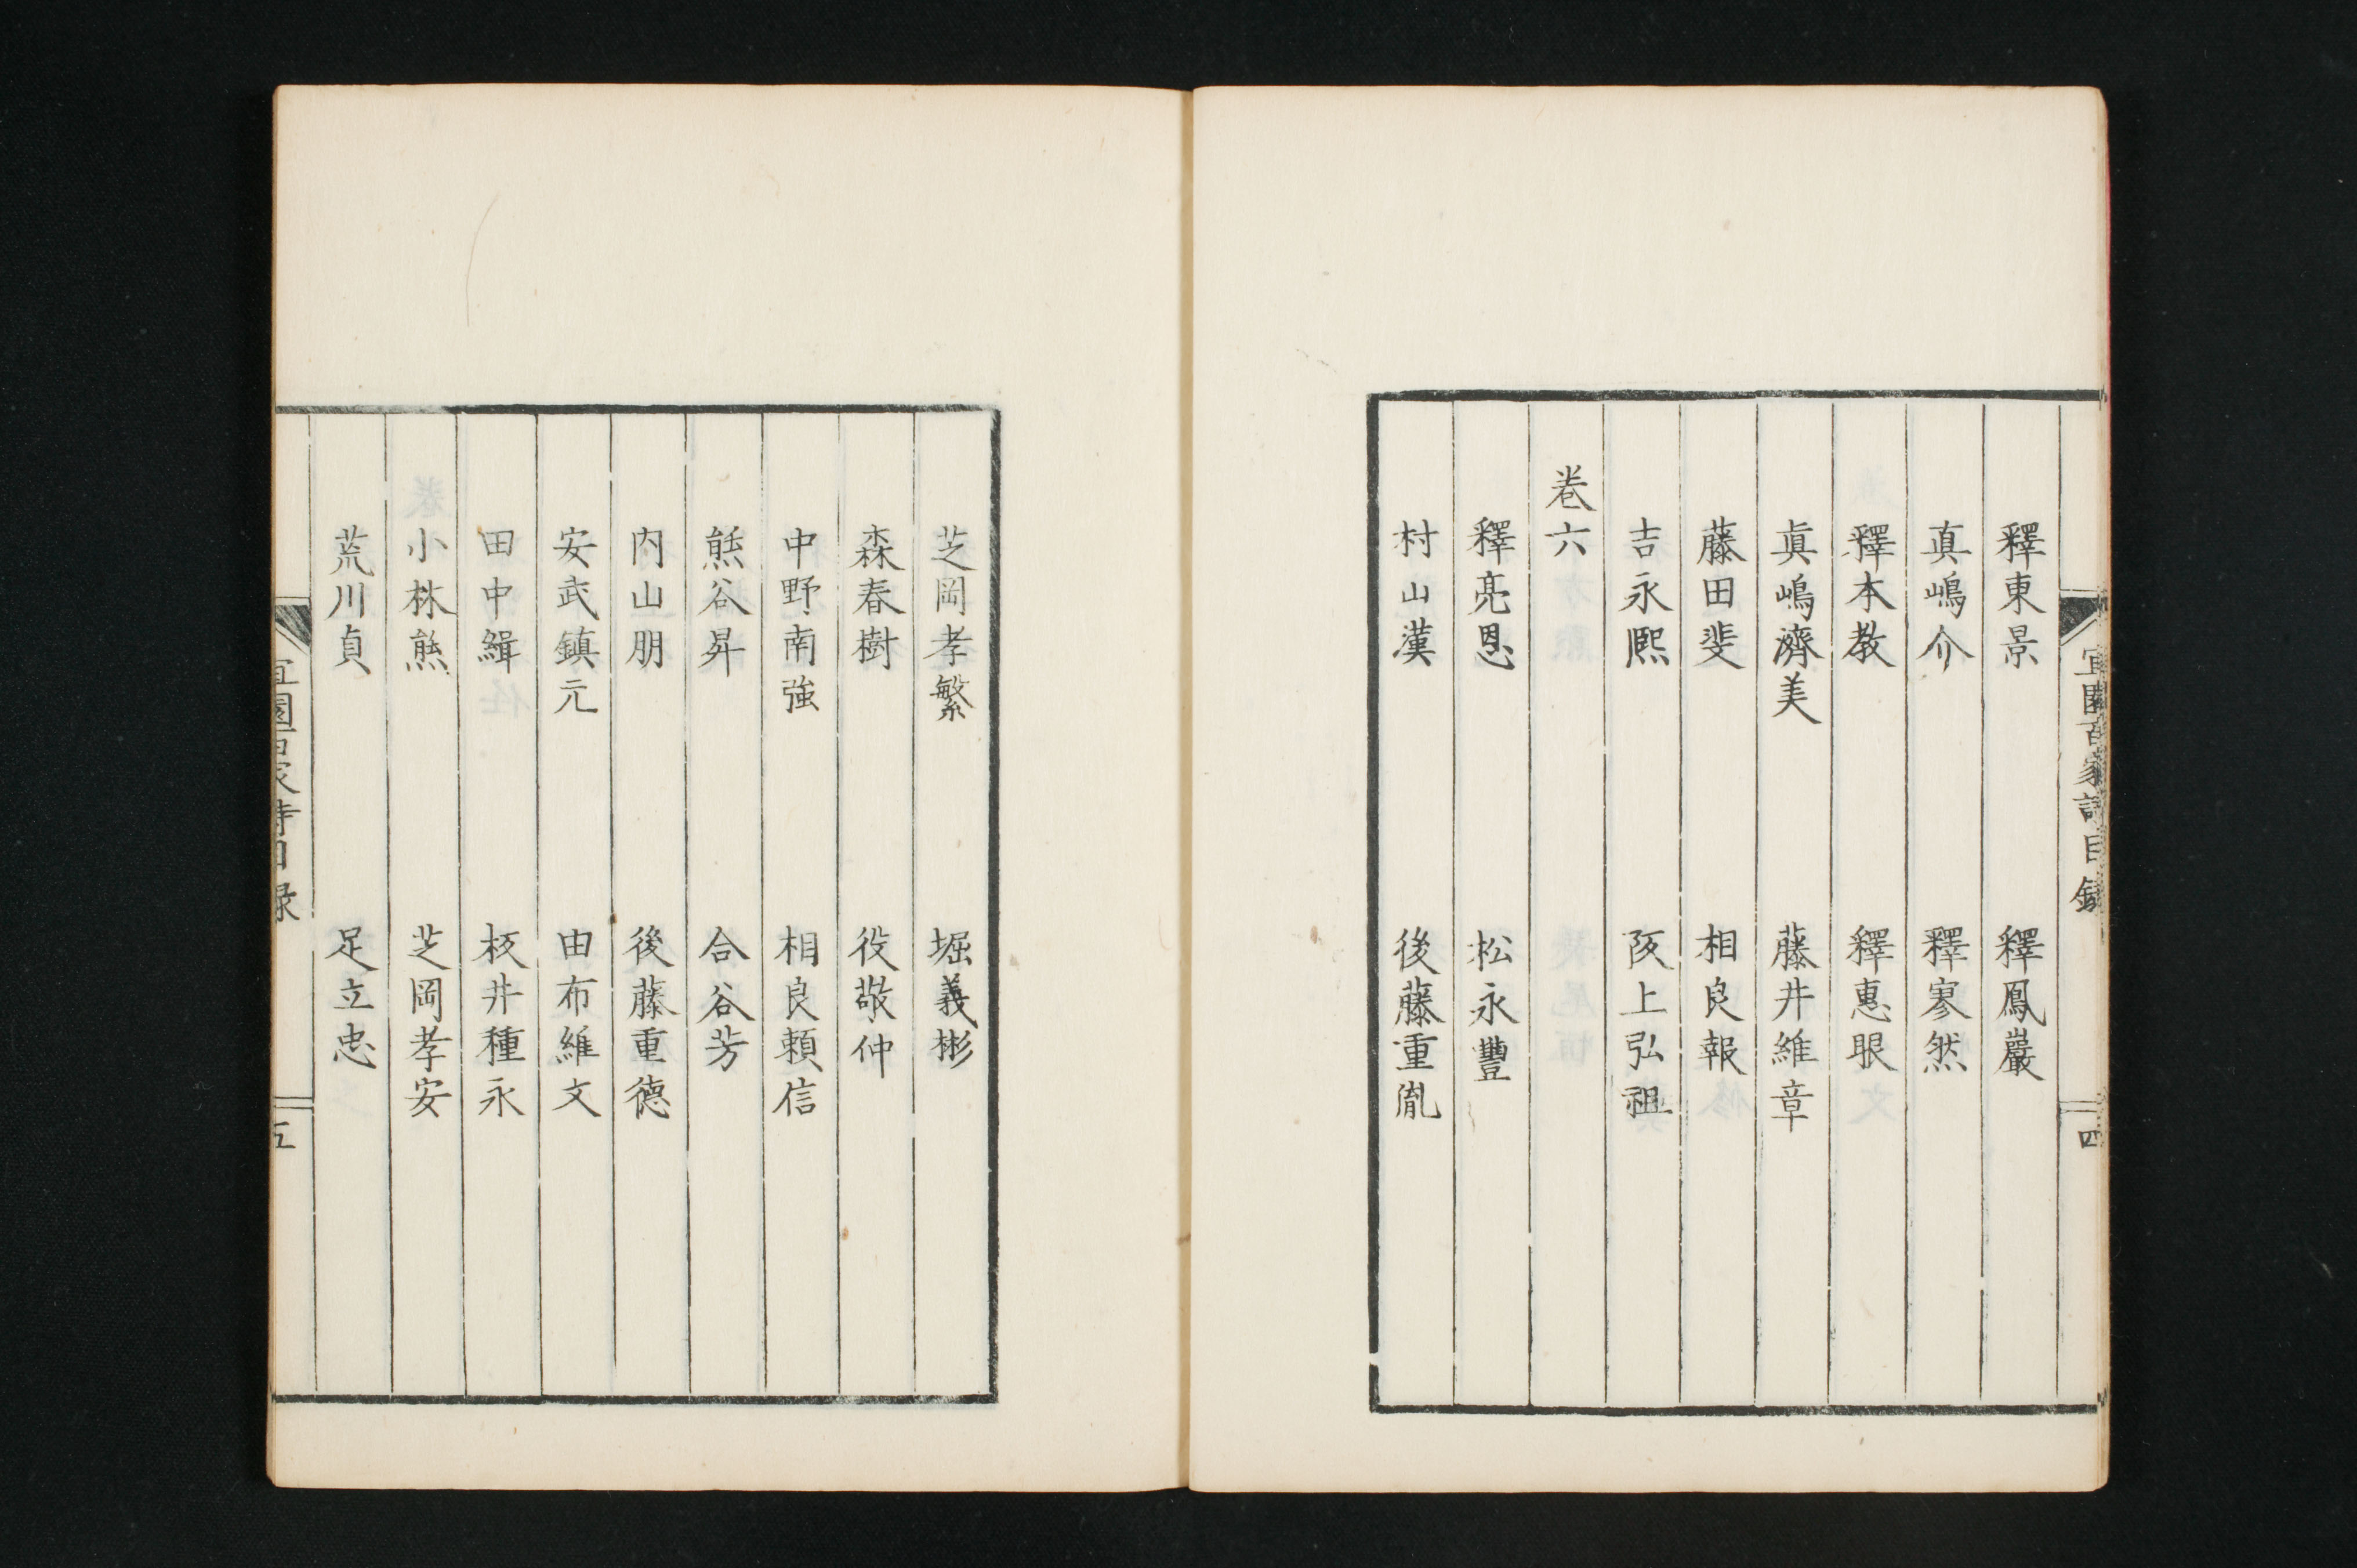 宜園百家詩目録 四
釋東景 釋鳳巖
真嶋介 釋寥然
釋本教 釋惠眼
眞嶋濟美 藤井維章
藤田斐 相良報
吉永熈 阪上弘祖
卷六
釋亮恩 松永豐
村山漢 後藤重胤
芝岡孝繁 堀義彬
森春樹 役敬仲
中野南強 相良頼信
熊谷昇 合谷芳
内山朋 後藤重德
安武鎮元 由布維文
田中緝 板井種永
小林熊 芝岡孝安
荒川貞 足立忠
宜園百家詩目録 五